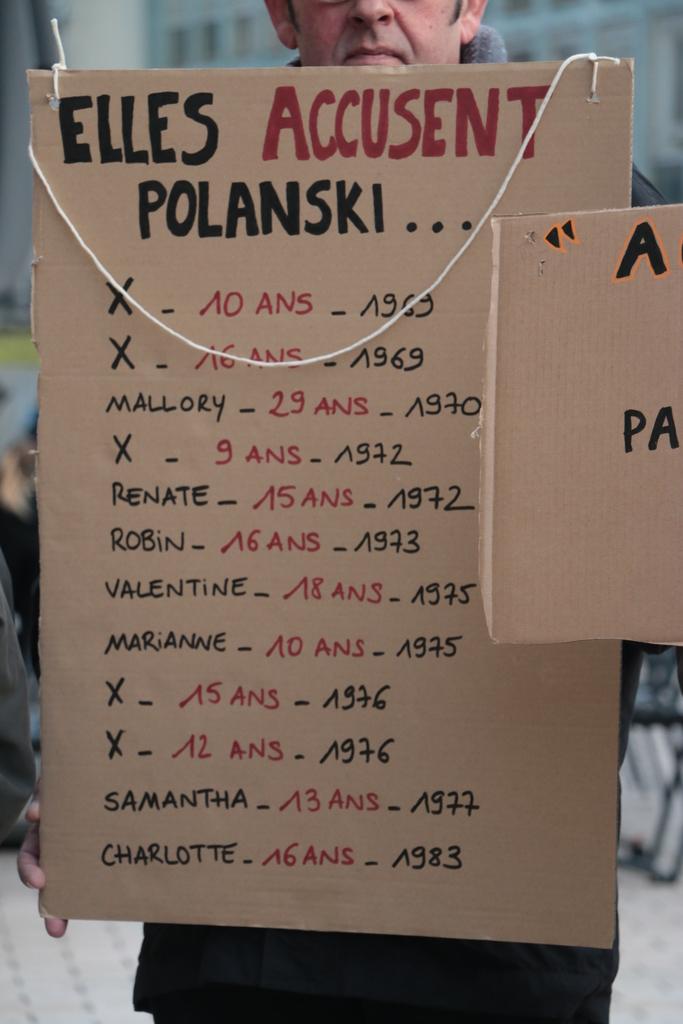 ELLES ACCUSENT
POLANSKI...
X - 10 ANS - 1969
X - 16 ANS - 1969
MALLORY - 29 ANS - 1970
X - 9 ANS - 1972
RENATE - 15 ANS - 1972
ROBiN - 16 ANS - 1973
VALENTiNE - 18 ANS - 1975
MARiANNE - 10 ANS - 1975
X - 15 ANS - 1976
X - 12 ANS - 1976
SAMANTHA - 13 ANS - 1977
CHARLOTTE - 16 ANS - 1983
"A
PA